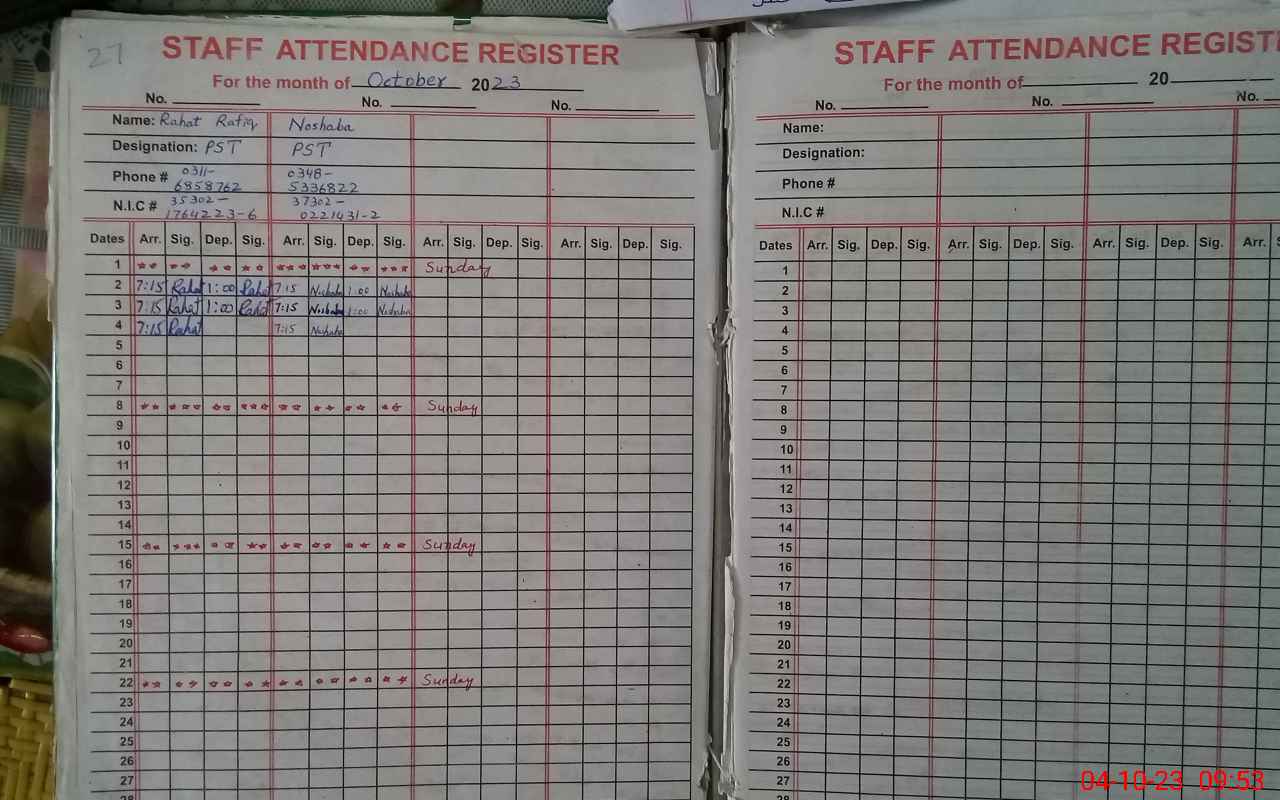 27
STAFF ATTENDANCE REGISTER
For the month of October 2023
No. No. No.
Name: Rahat Rafiq Noshaba
Designation: PST PST
Phone # 0311- 0348-
6858762 5336822
N.I.C # 35302- 37302-
1764223-6 0221431-2
Dates Arr. Sig. Dep. Sig. Arr. Sig. Dep. Sig. Arr. Sig. Dep. Sig. Arr. Sig. Dep. Sig.
1 Sunday
2 7:15 Rahat 1:00 Rahat 7:15 Noshaba 1:00 Noshaba
3 7:15 Rahat 1:00 Rahat 7:15 Noshaba 1:00 Noshaba
4 7:15 Rahat 7:15 Noshaba
5
6
7
8 Sunday
9
10
11
12
13
14
15 Sunday
16
17
18
19
20
21
22 Sunday
23
24
25
26
27
28
STAFF ATTENDANCE REGIST
For the month of 20
No. No. No.
Name:
Designation:
Phone #
N.I.C #
Dates Arr. Sig. Dep. Sig. Arr. Sig. Dep. Sig. Arr. Sig. Dep. Sig. Arr. S
1
2
3
4
5
6
7
8
9
10
11
12
13
14
15
16
17
18
19
20
21
22
23
24
25
26
27
28
04-10-23 09:53